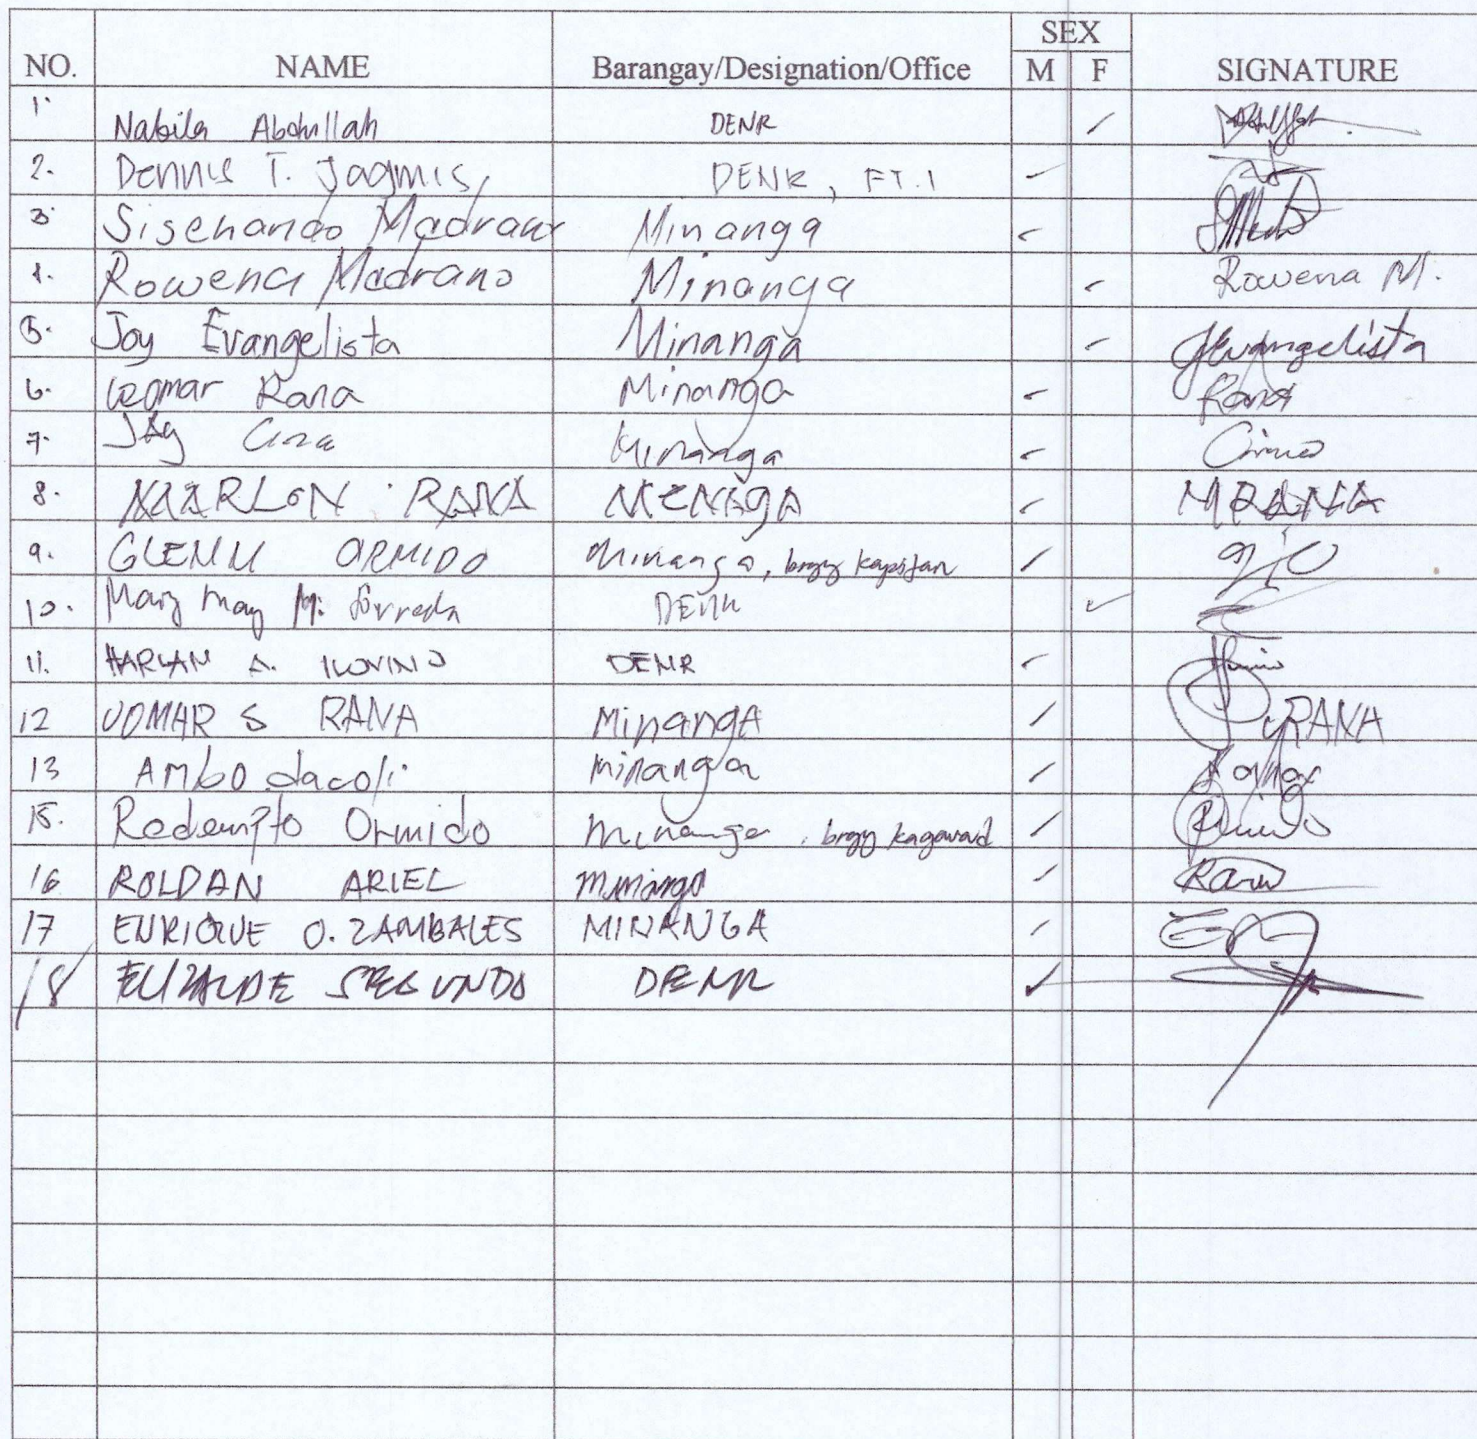 NO. NAME Barangay/Designation/Office SEX M F SIGNATURE
1. Nabila Abdullah DENR ✓
2. Dennis T. Jagmis, DENR, FT.1 ✓
3. Sisenando Madrano Minanga ✓
4. Rowena Madrano Minanga ✓ Rowena M.
5. Joy Evangelista Minanga ✓ JEvangelista
6. Rana Minanga ✓ Rana
7. Jay Minanga ✓
8. MARLON RANA MENAGA ✓ MRANA
9. GLENN ORMIDO Minanga, brgy kapitan ✓
10. Mary may M. DENR ✓
11. HARLAN A. ILOVINO DENR ✓
12 JOMAR S RANA MinangA ✓ RANA
13 AMbo dacoli Minanga ✓
15. Redempto Ormido Minanga, brgy kagawad ✓
16 ROLDAN ARIEL Minanga ✓
17 ENRIQUE O. ZAMBALES MINANGA ✓
18 ELIZALDE SEGUNDO DENR ✓